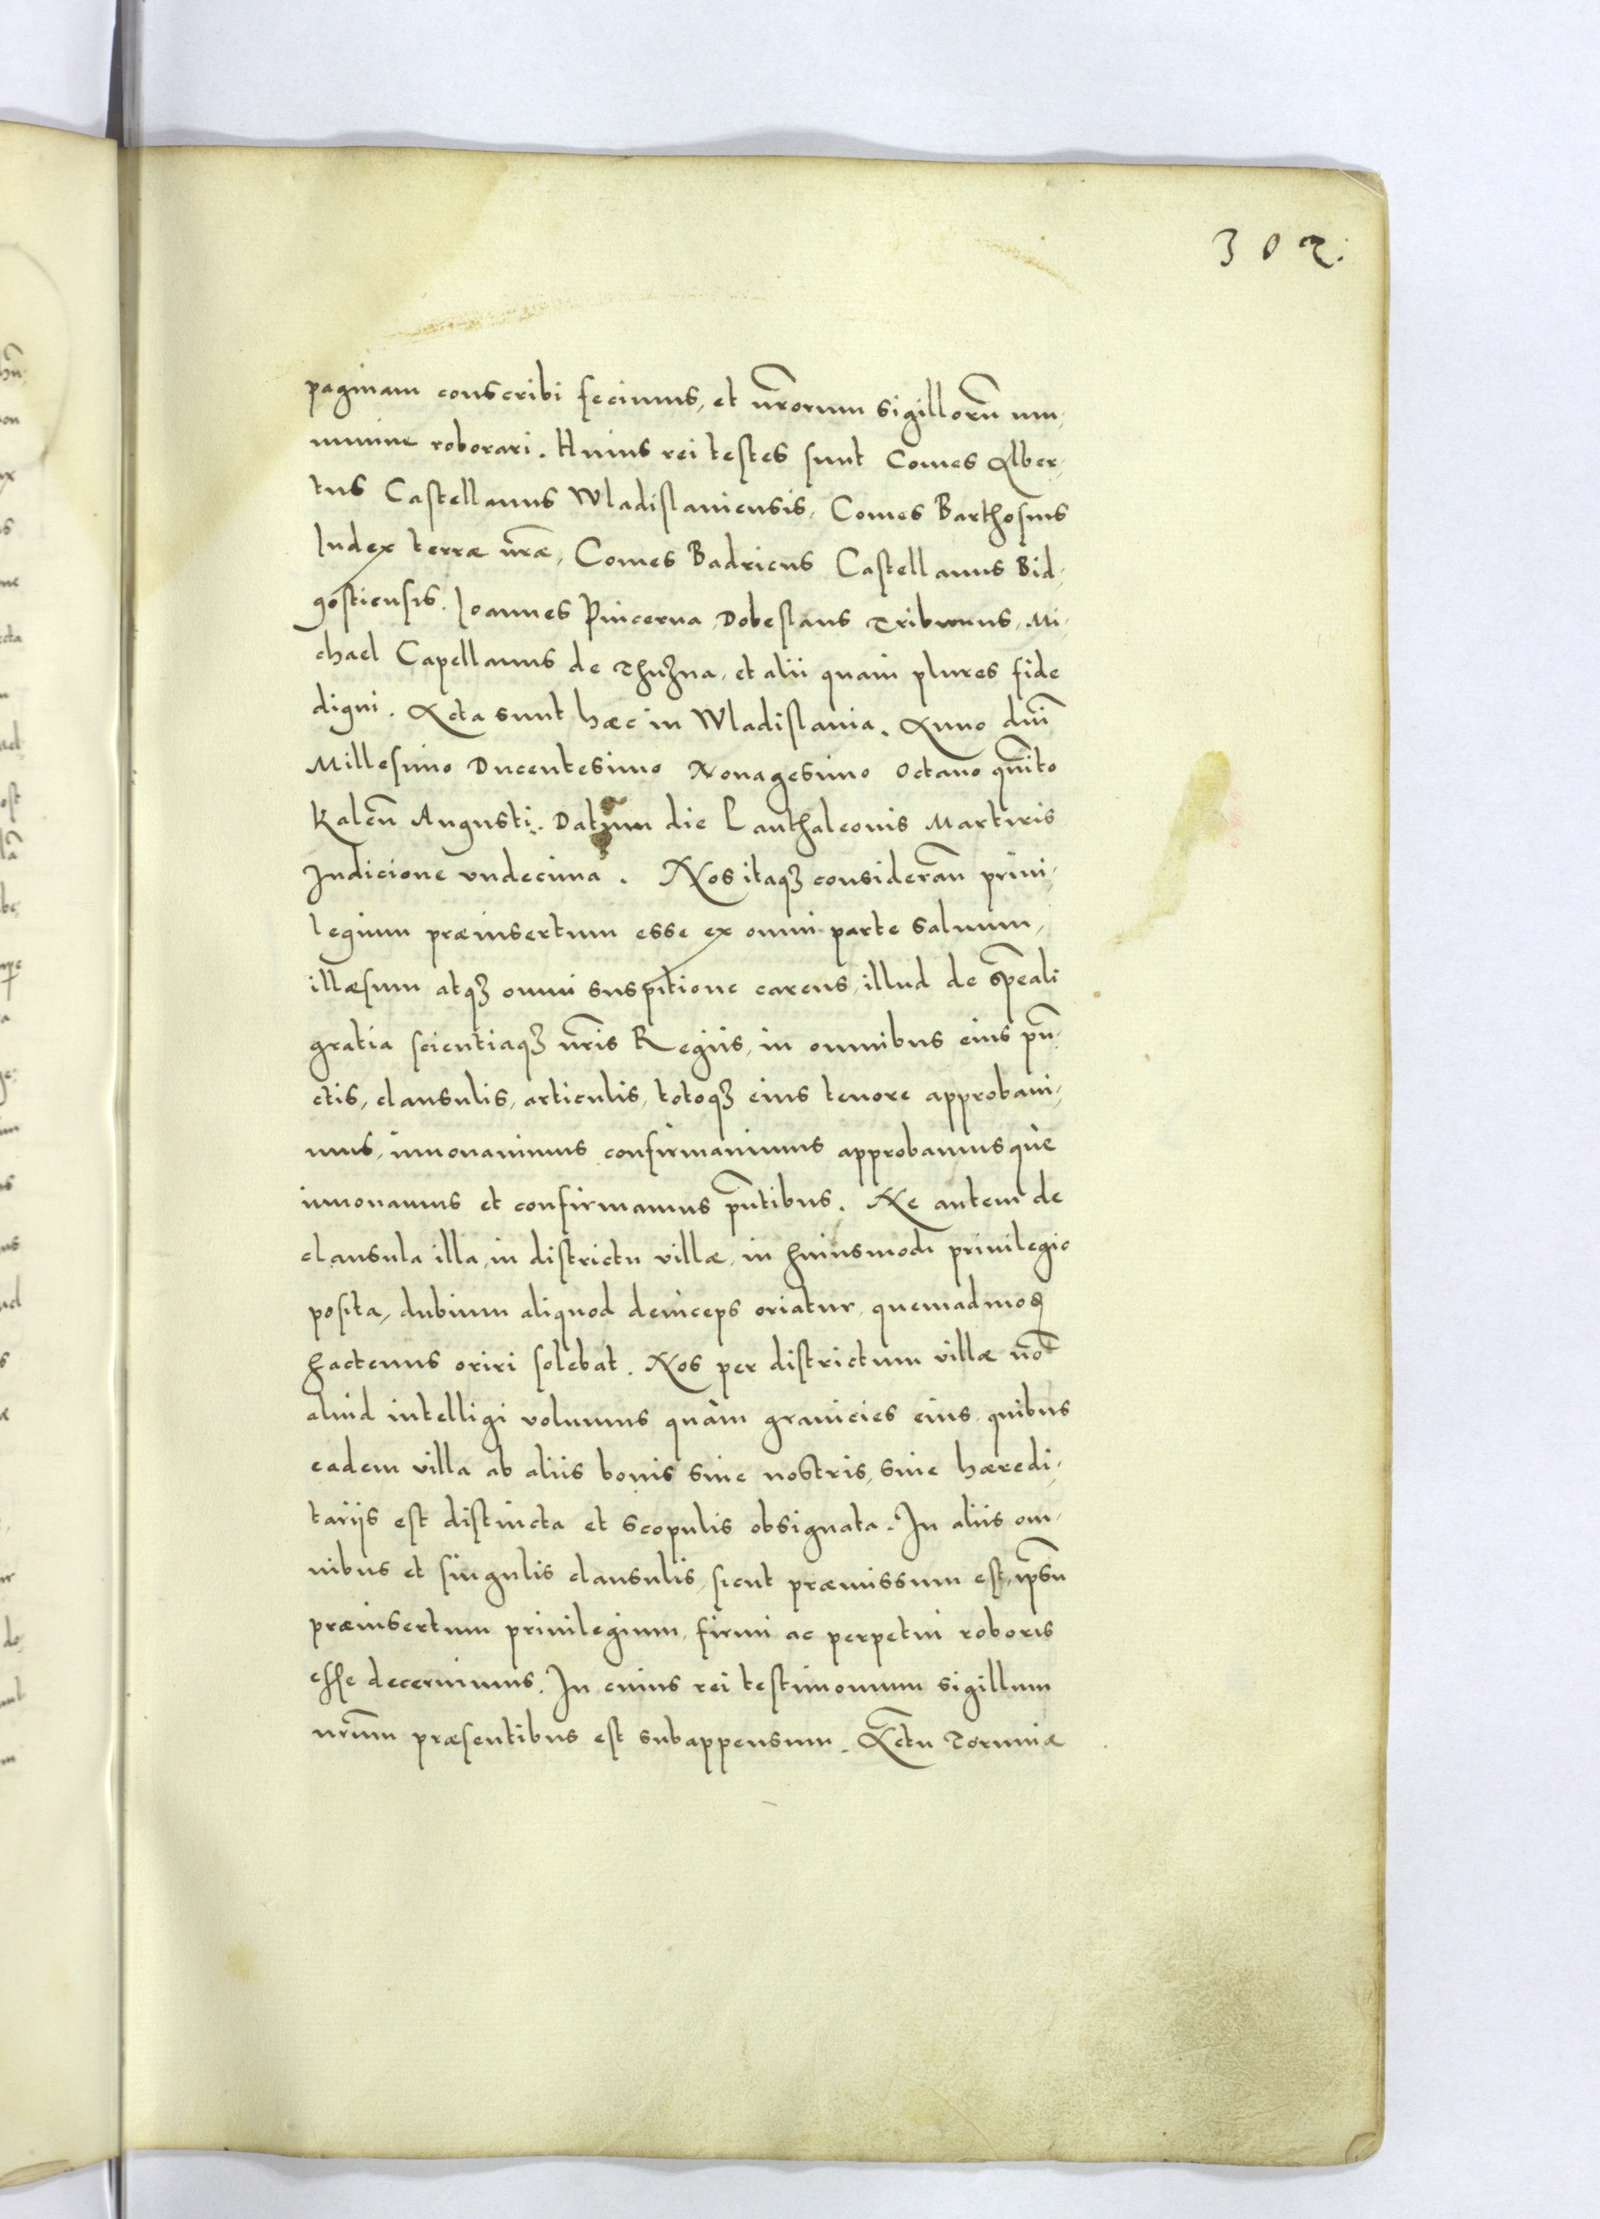 302.
paginam conscribi fecimus, et nr̃orum sigillorũ mu,
nimine roborari. Huius rei testes sunt Comes Alber,
tus Castellanus Wladislauiensis, Comes Barthosius
Iudex terræ nr̃æ, Comes Badricus Castellanus Bid,
gostiensis. Ioannes Pincerna Dobeslaus Tribunus, Mi,
chael Capellanus de Thuzna, et alii quam plures fide
digni. Acta sunt hæc in Wladislauia. Anno dnĩ
Millesimo Ducentesimo Nonagesimo Octauo quĩto
Kaleñ Augusti. Datum die Panthaleonis Martiris
Indicione vndecima. Nos itaqȝ considerañ priui,
legium præinsertum esse ex omni parte saluum,
illæsum atqȝ omni suspitione carens, illud de sp̃eali
gratia scientiaqȝ nr̃is Regiis, in omnibus eius pũ,
ctis, clausulis, articulis, totoqȝ eius tenore approbaui,
mus, innouauimus confirmauimus approbamusque
innouamus et confirmamus pñtibus. Ne autem de
clausula illa, in districtu villæ, in huiusmodi priuilegio
posita, dubium aliquod deinceps oriatur, quemadmoꝺ
hactenus oriri solebat. Nos per districtum villæ nõ
aliud intelligi volumus quàm granicies eius, quibus
eadem villa ab aliis bonis siue nostris, siue hæredi,
tariis est distincta et scopulis obsignata. In aliis om,
nibus et singulis clausulis, sicut præmissum est, ipsũ
præinsertum priuilegium, firmi ac perpetui roboris
esse decernimus. In cuius rei testimonium sigillum
nr̃um præsentibus est subappensum. Actũ Toruniæ